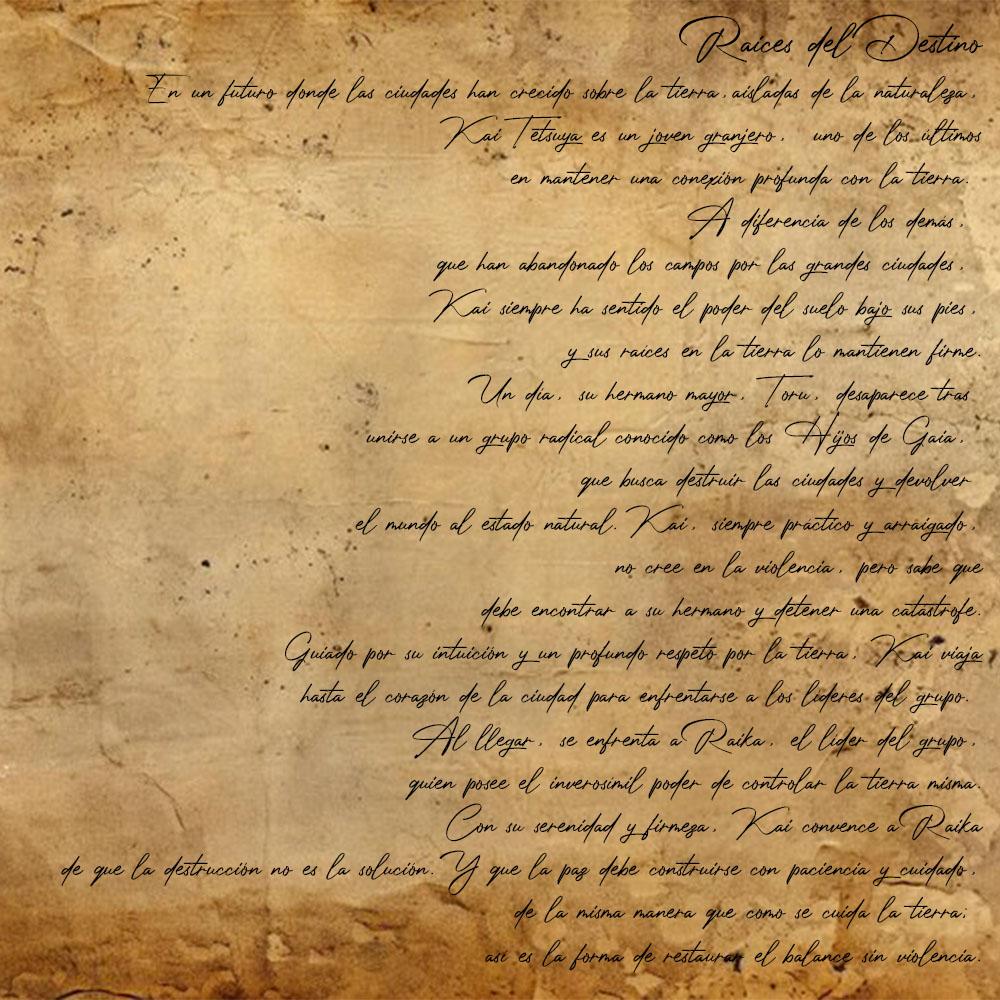 Raíces del Destino
En un futuro donde las ciudades han crecido sobre la tierra, aisladas de la naturaleza,
Kai Tetsuya es un joven granjero, uno de los últimos
en mantener una conexión profunda con la tierra.
A diferencia de los demás,
que han abandonado los campos por las grandes ciudades,
Kai siempre ha sentido el poder del suelo bajo sus pies,
y sus raíces en la tierra lo mantienen firme.
Un día, su hermano mayor, Toru, desaparece tras
unirse a un grupo radical conocido como los Hijos de Gaia,
que busca destruir las ciudades y devolver
el mundo al estado natural. Kai, siempre práctico y arraigado,
no cree en la violencia, pero sabe que
debe encontrar a su hermano y detener una catástrofe.
Guiado por su intuición y un profundo respeto por la tierra, Kai viaja
hasta el corazón de la ciudad para enfrentarse a los líderes del grupo.
Al llegar, se enfrenta a Raika, el líder del grupo,
quien posee el inverosímil poder de controlar la tierra misma.
Con su serenidad y firmeza, Kai convence a Raika
de que la destrucción no es la solución. Y que la paz debe construirse con paciencia y cuidado,
de la misma manera que como se cuida la tierra;
así es la forma de restaurar el balance sin violencia.